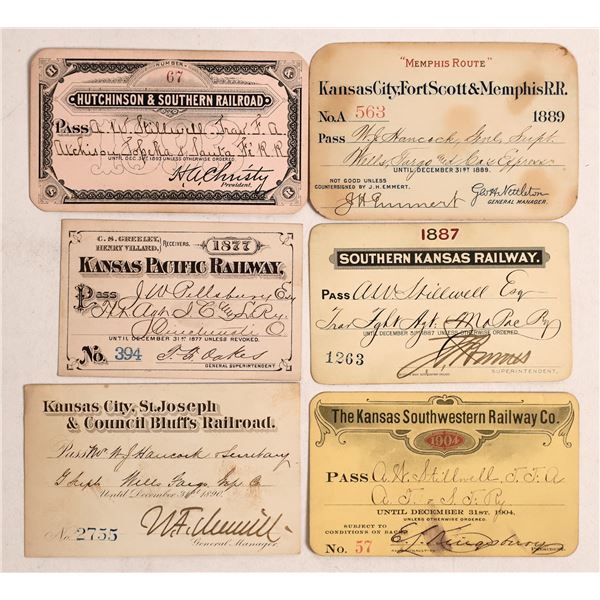 NUMBER
67
HUTCHINSON & SOUTHERN RAILROAD
PASS A. W. Stillwell, Trav. F. A
Atchison Topeka & Santa Fe R R
UNTIL DEC. 31ST 1893 UNLESS OTHERWISE ORDERED.
H A Christy
President.
"MEMPHIS ROUTE"
Kansas City, Fort Scott & Memphis R.R.
No. A 563 1889
Pass W. J. Hancock, Genl. Supt.
Wells Fargo and Co's Express
UNTIL DECEMBER 31ST 1889.
NOT GOOD UNLESS
COUNTERSIGNED BY J. H. EMMERT.
J H Emmert
Geo H Nettleton
GENERAL MANAGER.
C. S. GREELEY,
HENRY VILLARD,
RECEIVERS.
1877
KANSAS PACIFIC RAILWAY,
Pass J. W. Pillsbury Esq
Cincinnati O
UNTIL DECEMBER 31ST 1877 UNLESS REVOKED.
No. 394
T. F. Oakes
GENERAL SUPERINTENDENT.
1887
SOUTHERN KANSAS RAILWAY.
PASS A W Stillwell Esq
Trav Frght Agt. Mo Pac Ry
UNTIL DECEMBER 31ST 1887 UNLESS OTHERWISE ORDERED.
1263
SUPERINTENDENT.
Kansas City, St. Joseph
& Council Bluffs Railroad.
Pass Mr W J Hancock & Secretary
G Supt Wells Fargo Exp. Co
Until December 31st 1890.
No. 2755
General Manager.
The Kansas Southwestern Railway Co.
1904
PASS A. W. Stillwell, T. F. A
A. T. & S. F. Ry
UNTIL DECEMBER 31ST. 1904.
UNLESS OTHERWISE ORDERED.
SUBJECT TO
CONDITIONS ON BACK
No. 57
PRESIDENT.